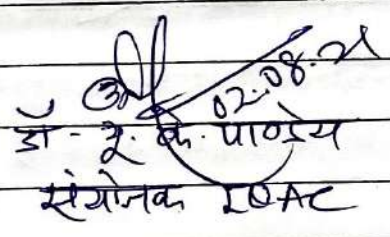 02.08.21
डॉ - यू. के. पाण्डेय
संयोजक IQAC